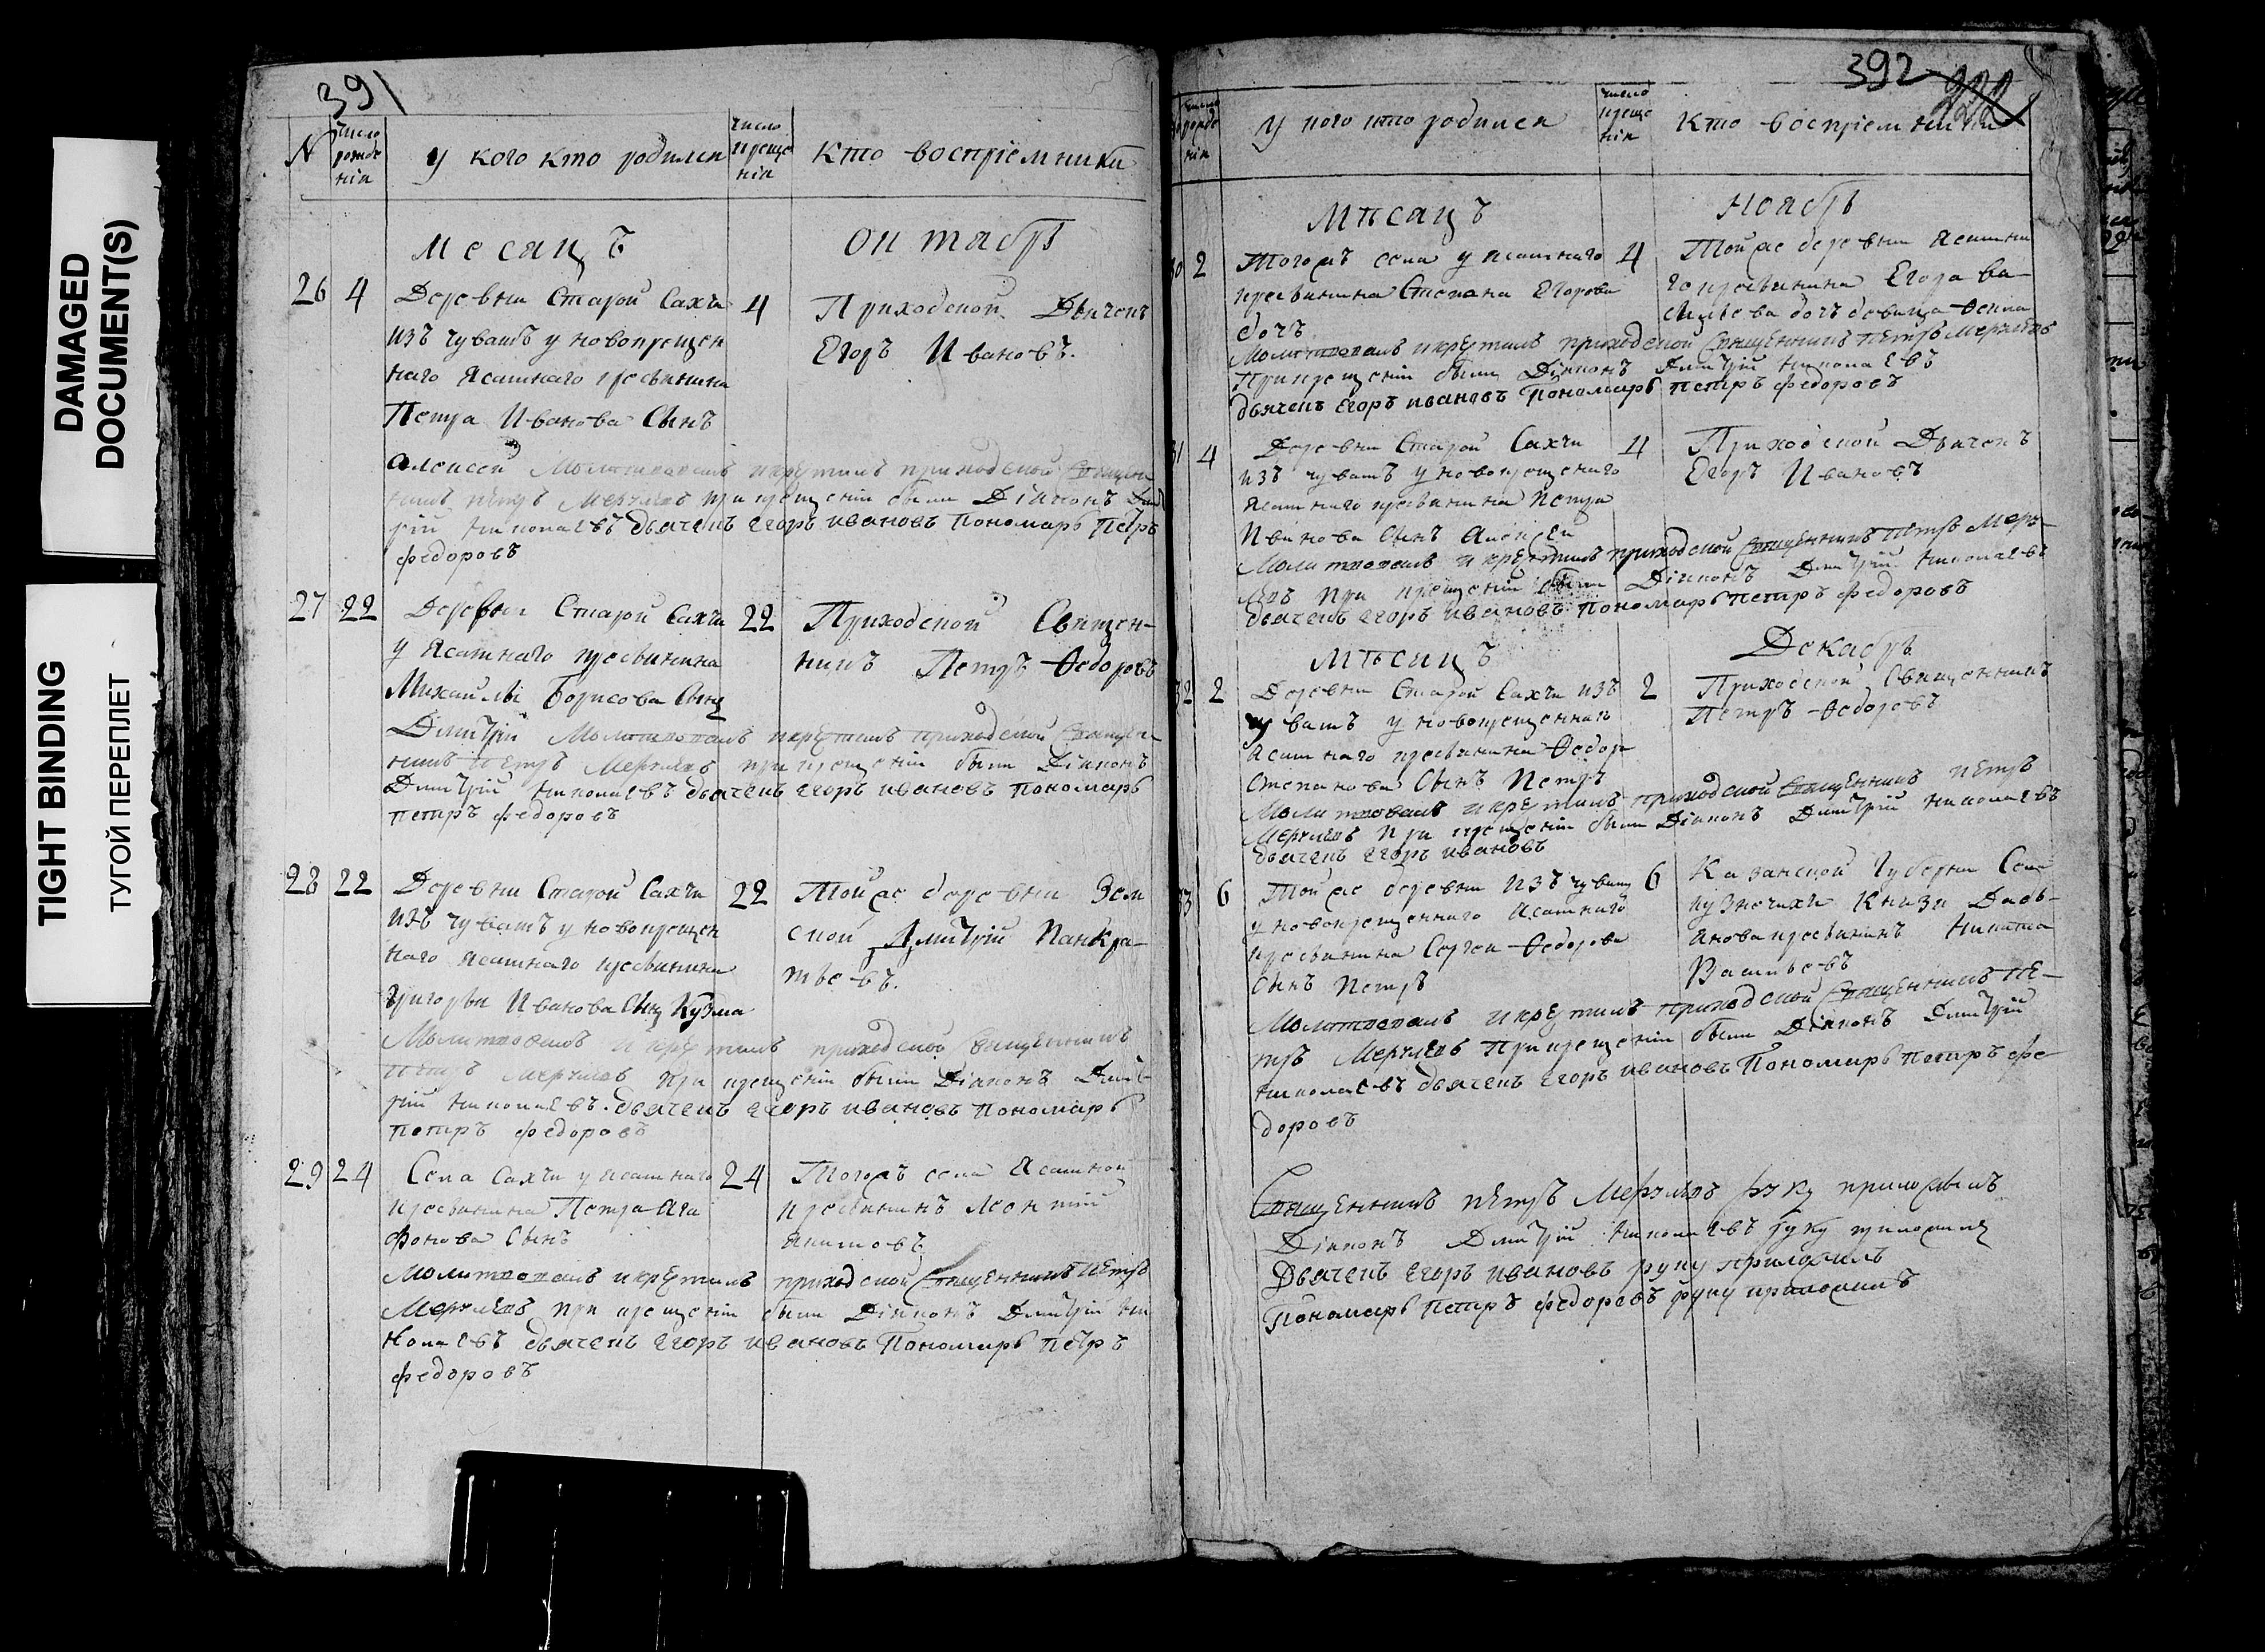 DAMAGED
DOCUMENT(S)
TIGHT BINDING
ТУГОЙ ПЕРЕПЛЕТ
391
N
число рожде нія
у кого кто родился
число креще нія
кто воспріемники
месяцъ октябрь
26 4
Деревни Старой Сахчи
изъ чувашъ у новокрещен
наго ясашнаго кресьянина
Петра Иванова Сынъ
Алексей молитвовалъ и крестилъ приходской Священ
никъ Петръ при крещеніи были Діаконъ Дмит
рій николаевъ дьячекъ Егоръ ивановъ Пономарь Петръ
федоровъ
4
Приходской Дьячекъ
Егоръ Ивановъ.
27 22
Деревни Старой Сахчи
у Ясашнаго кресьянина
Михаилы Борисова Сынъ
Дмитрій Молитвовалъ и крестилъ приходской Священ
никъ Петръ при крещеніи были Діаконъ
Дмитрій николаевъ дьячекъ Егоръ ивановъ Пономарь
петръ федоровъ
22
Приходской Священ-
никъ Петръ Ѳедоровъ
28 22
Деревни Старой Сахчи
изъ чувашъ у новокрещен
наго ясашнаго кресьянина
Григорьи Иванова Сынъ Кузма
Молитвовалъ и крестилъ приходской Священникъ
Петръ при крещеніи были Діаконъ Дмит
рій николаевъ. дьячекъ Егоръ ивановъ Пономарь
петръ федоровъ
22
Той же деревни Зем
ской Дмитрій Панкра-
тьевъ.
29 24
Села Сахчи у ясашнаго
кресьянина Петра Ага
фонова Сынъ
Молитвовалъ и крестилъ приходской Священникъ Петръ
при крещеніи были Діаконъ Дмитрій ни
колаевъ дьячекъ Егоръ ивановъ Пономарь петръ
федоровъ
24
Тогожъ села Ясашной
кресьянинъ Леонтій
392
число рожде нія
у кого кто родился
число креще нія
кто воспріемники
Мѣсяцъ Ноябрь
30 2
Тогожъ села у ясашнаго
кресьянина Степана Егорова
дочь
Молитвовалъ и крестилъ приходской Священникъ Петръ
При крещеніи были Діаконъ Дмитрій николаевъ
дьячекъ Егоръ ивановъ Пономарь петръ федоровъ
4
Той же деревни Ясашна
го кресьянина Егора Ва-
сильева дочь девица
31 4
Деревни Старой Сахчи
изъ чувашъ у новокрещенаго
ясашнаго кресьянина Петра
Иванова Сынъ Алексей
Молитвовалъ и крестилъ приходской Священникъ Петръ
при крещеніи были Діаконъ Дмитрій николаевъ
дьячекъ Егоръ ивановъ Пономарь петръ федоровъ
4
Приходской Дьячекъ
Егоръ Ивановъ
Мѣсяцъ Декабрь
32 2
Деревни Старой Сахчи изъ
чувашъ у новокрещеннаго
ясашнаго кресьянина Ѳедор
Степанова Сынъ Петръ
Молитвовалъ и крестилъ приходской Священникъ Петръ
при крещеніи были Діаконъ Дмитрій николаевъ
дьячекъ Егоръ ивановъ
2
Приходской Священникъ
Петръ Ѳедоровъ
33 6
Той же деревни изъ чувашъ
у новокрещеннаго ясашнаго
кресьянина Сергея Ѳедорова
Сынъ Петръ
Молитвовалъ и крестилъ приходской Священникъ Пе-
тръ при крещеніи были Діаконъ Дмитрій
николаевъ дьячекъ Егоръ ивановъ Пономарь петръ фе
доровъ
6
Казанской Губерни Села
Кузнечихи Князя
кресьянинъ Никита
Васильевъ
Священникъ Петръ руку приложилъ
Діаконъ Дмитрій николаевъ руку приложилъ
Дьячекъ Егоръ ивановъ руку приложилъ
Пономарь петръ федоровъ руку приложилъ